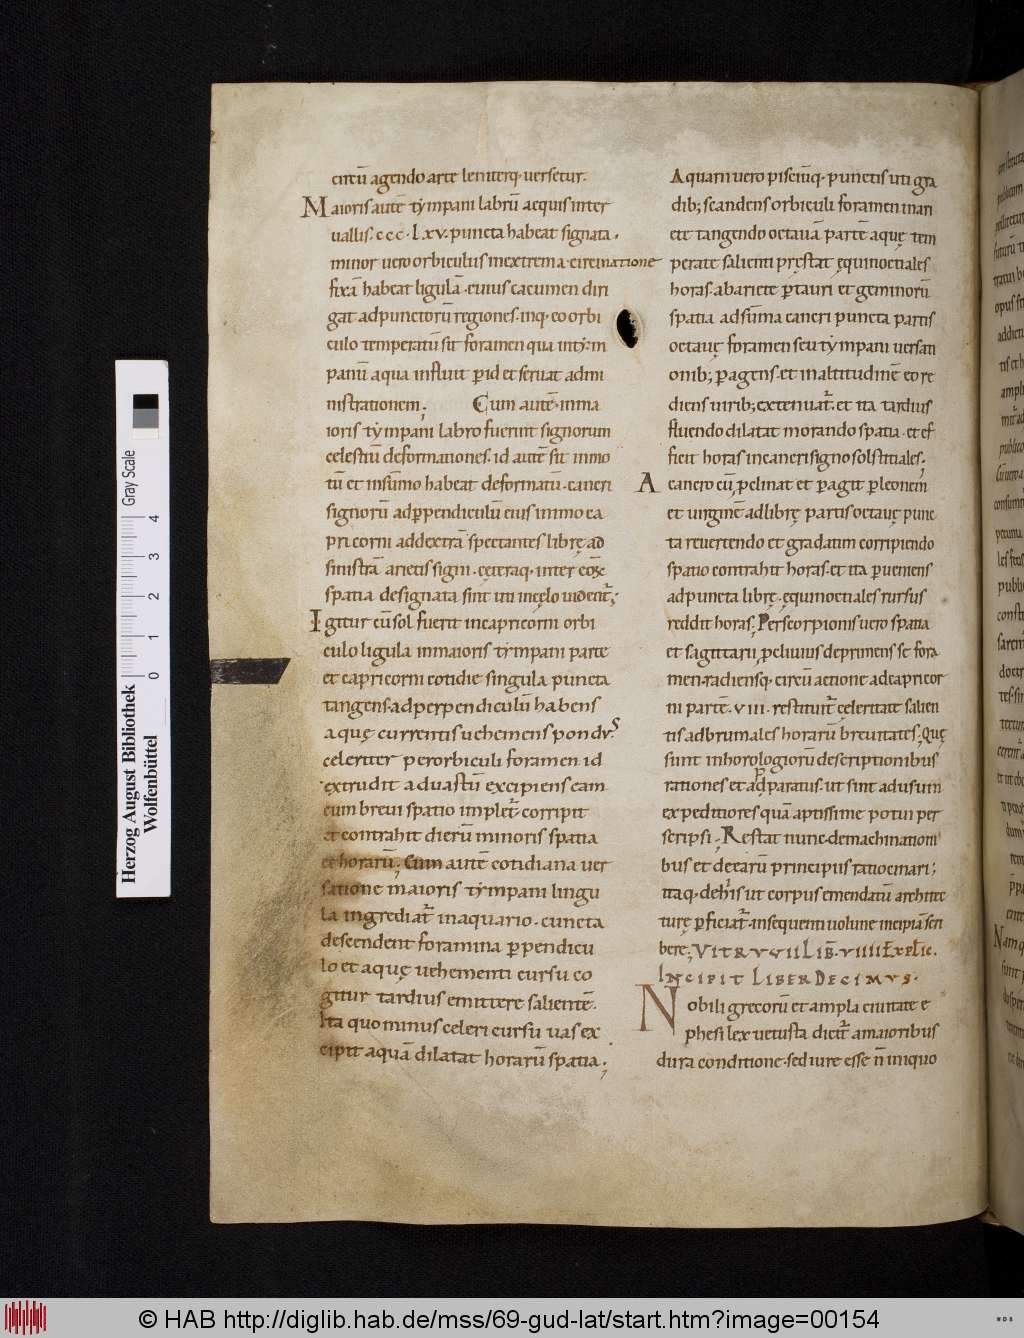 circū agendo arte leniterq· versetur.
Maioris autē tẏmpani labrū aequis inter
uallis· ccc· lxv· puncta habeat signata.
minor uero orbiculus in extrema circinatione
fixā habeat ligulā· cuius cacumen diri
gat ad punctorū regiones· inq· eo orbi
culo temperatū sit foramen qua in tẏm
panū aqua influit p̄ id et seruat admi
nistrationem. Cum autē· in ma
ioris tẏmpani labro fuerint signorum
celestiū deformationes· id autē sit inmo
tū et insūmo habeat deformatū· cancri
signorū adp̄pendiculū eius in imo ca
pricorni addextrā spectantes librę ad
sinistrā arietis signi· cęteraq· inter eorū
spatia designata sint uti incęlo uident̄;
Igitur cū sol fuerit incapricorni orbi
culo ligula in maioris tẏmpani parte
et capricorni cotidie singula puncta
tangens· ad perpendiculū habens
aquę currentis uehemens pondus
celeriter per orbiculi foramen id
extrudit aduastū excipiens eam
cum breui spatio implet̄ corripit
et contrahit dierū minoris spatia
et horarū. Cum autē cotidiana uer
satione maioris tẏmpani lingu
la ingrediat̄ inaquario· cuncta
descendent foramina p̄pendicu
lo et aquę uehementi cursu co
gitur tardius emittere salientē.
Ita quo minus celeri cursu uas ex
cipit aquā dilatat horarū spatia.
Aquarii uero pisciūq· punctis uti gra
dib; scandens orbiculi foramen in ari
ete tangendo octauā partē aquę tem
perate salienti pręstat ęquinoctiales
horas· abariete p̄ tauri et geminorū
spatia ad sūma cancri puncta partis
octauę foramen seu tẏmpani uersati
onib; p̄agens· et inaltitudinē eo re
diens uirib; extenuat̄· et ita tardius
fluendo dilatat morando spatia· et ef
ficit horas in cancri signo solstitiales.
A cancro cū p̄clinat et p̄agit p̄ leonem
et uirginē ad librę partis octauę punc
ta reuertendo et gradatim corripiendo
spatio contrahit horas· et ita p̄ueniens
ad puncta librę· ęquinoctiales rursus
reddit horas. Per scorpionis uero spatia
et sagittarii p̄cliuius deprimens se fora
men· radiensq· circū actione ad capricor
ni partē· VIII· restituit̄ celeritate salien
tis ad brumales horarū breuitates. Quę
sunt inhorologiorū descriptionibus
rationes et adparatus· ut sint ad usum
expeditiores quā aptissime potui per
scripsi. Restat nunc· de machinationi
bus et de earū principiis ratiocinari;
itaq· de his ut corpus emendatū architec
turę p̄ficiat̄· insequenti uolune incipiā scri
bere. VITRVGII LIB̄· VIIII EXPLIC̄.
INCIPIT LIBER DECIMVS·
Nobili grecorū et ampla ciuitate e
phesi lex uetusta dicit̄ amaioribus
dura conditione· sed iure esse n̄ iniquo
Herzog August Bibliothek
Wolfenbüttel
Gray Scale
0 1 2 3 4
© HAB http://diglib.hab.de/mss/69-gud-lat/start.htm?image=00154